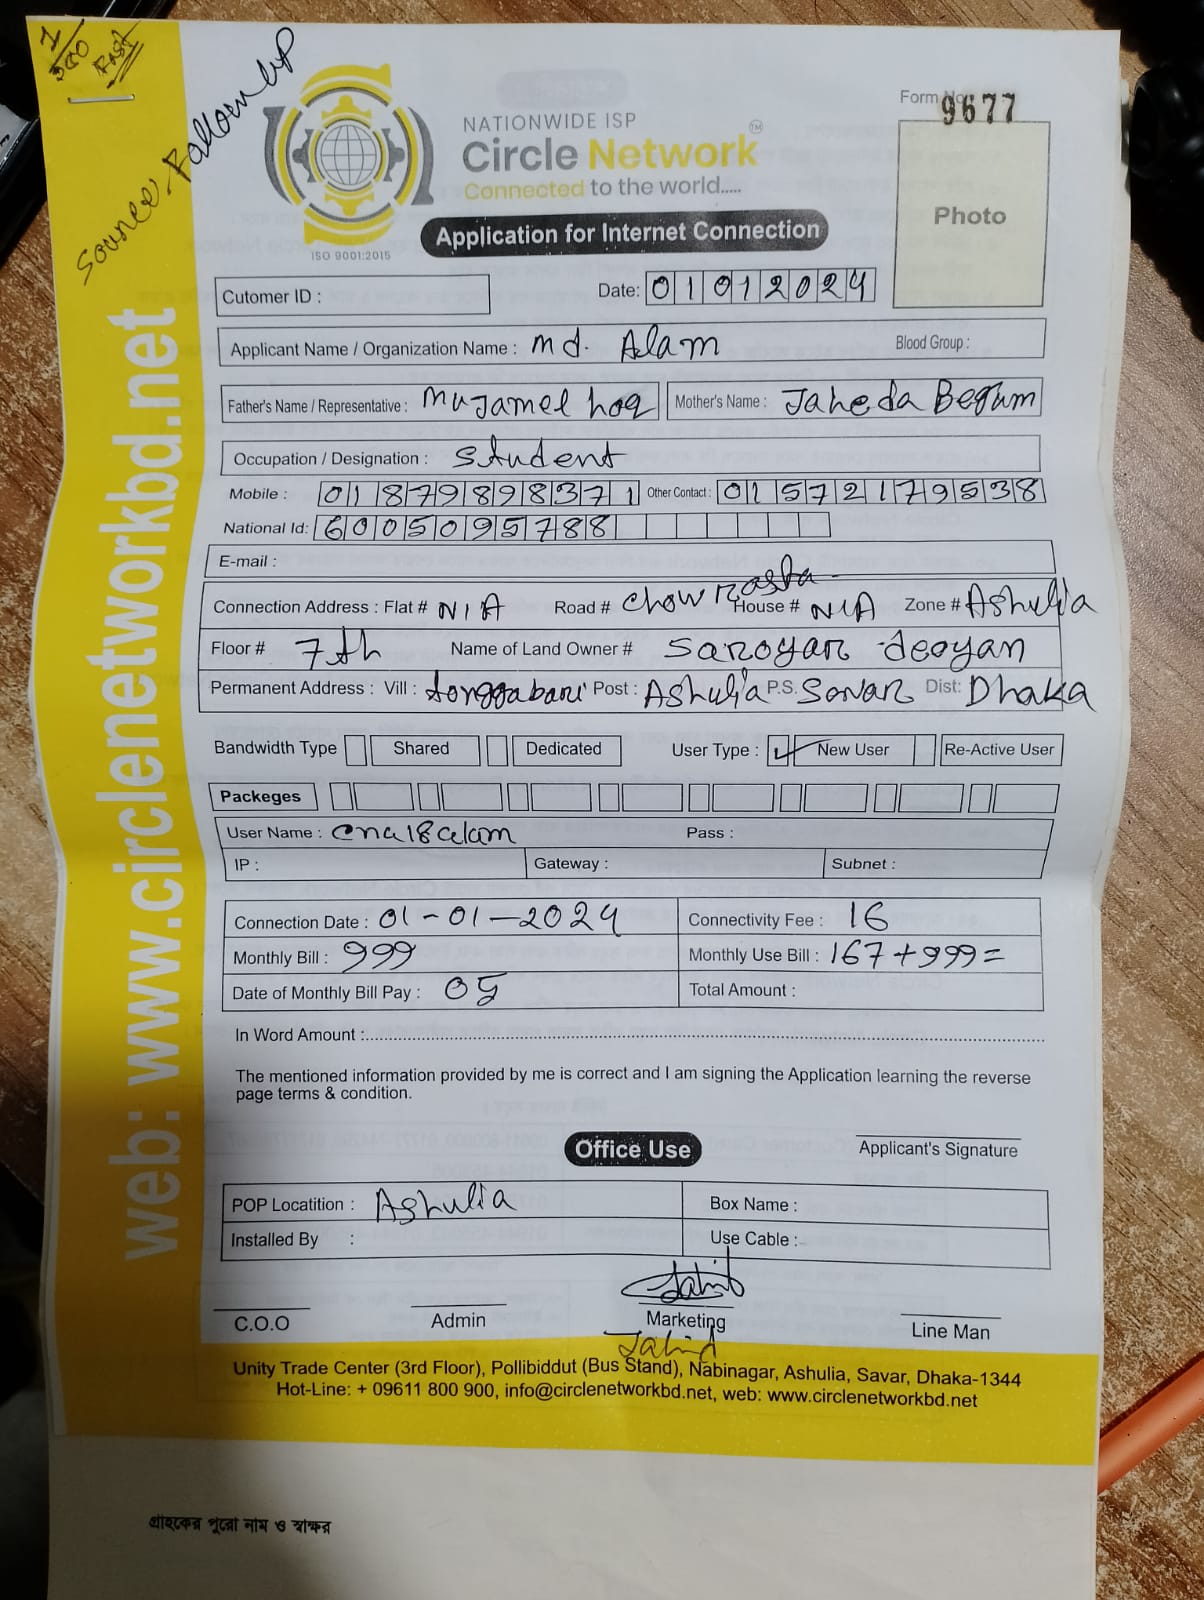 1
500
Fast
Source Follow UP
NATIONWIDE ISP
Circle Network TM
Connected to the world.....
ISO 9001:2015
Form No 9677
Photo
Application for Internet Connection
Cutomer ID :
Date: 01012024
Applicant Name / Organization Name : Md. Alam Blood Group :
Father's Name / Representative : Mujamel hoq Mother's Name : Jaheda Begum
Occupation / Designation : Student
Mobile : 01879898371 Other Contact : 01572179538
National Id: 6005095788
E-mail :
Connection Address : Flat # N/A Road # Chowrasta House # N/A Zone # Ashulia
Floor # 7th Name of Land Owner # Saroyar deoyan
Permanent Address : Vill : tonggabari Post : Ashulia P.S. Savar Dist: Dhaka
Bandwidth Type Shared Dedicated User Type : ✓ New User Re-Active User
Packeges
User Name : cna18alam Pass :
IP : Gateway : Subnet :
Connection Date : 01-01-2024 Connectivity Fee : 16
Monthly Bill : 999 Monthly Use Bill : 167+999=
Date of Monthly Bill Pay : 05 Total Amount :
In Word Amount :
The mentioned information provided by me is correct and I am signing the Application learning the reverse
page terms & condition.
Office Use
Applicant's Signature
POP Locatition : Ashulia Box Name :
Installed By : Use Cable :
Jahid
C.O.O Admin Marketing Line Man
Jahid
Unity Trade Center (3rd Floor), Pollibiddut (Bus Stand), Nabinagar, Ashulia, Savar, Dhaka-1344
Hot-Line: + 09611 800 900, info@circlenetworkbd.net, web: www.circlenetworkbd.net
web: www.circlenetworkbd.net
গ্রাহকের পুরো নাম ও স্বাক্ষর